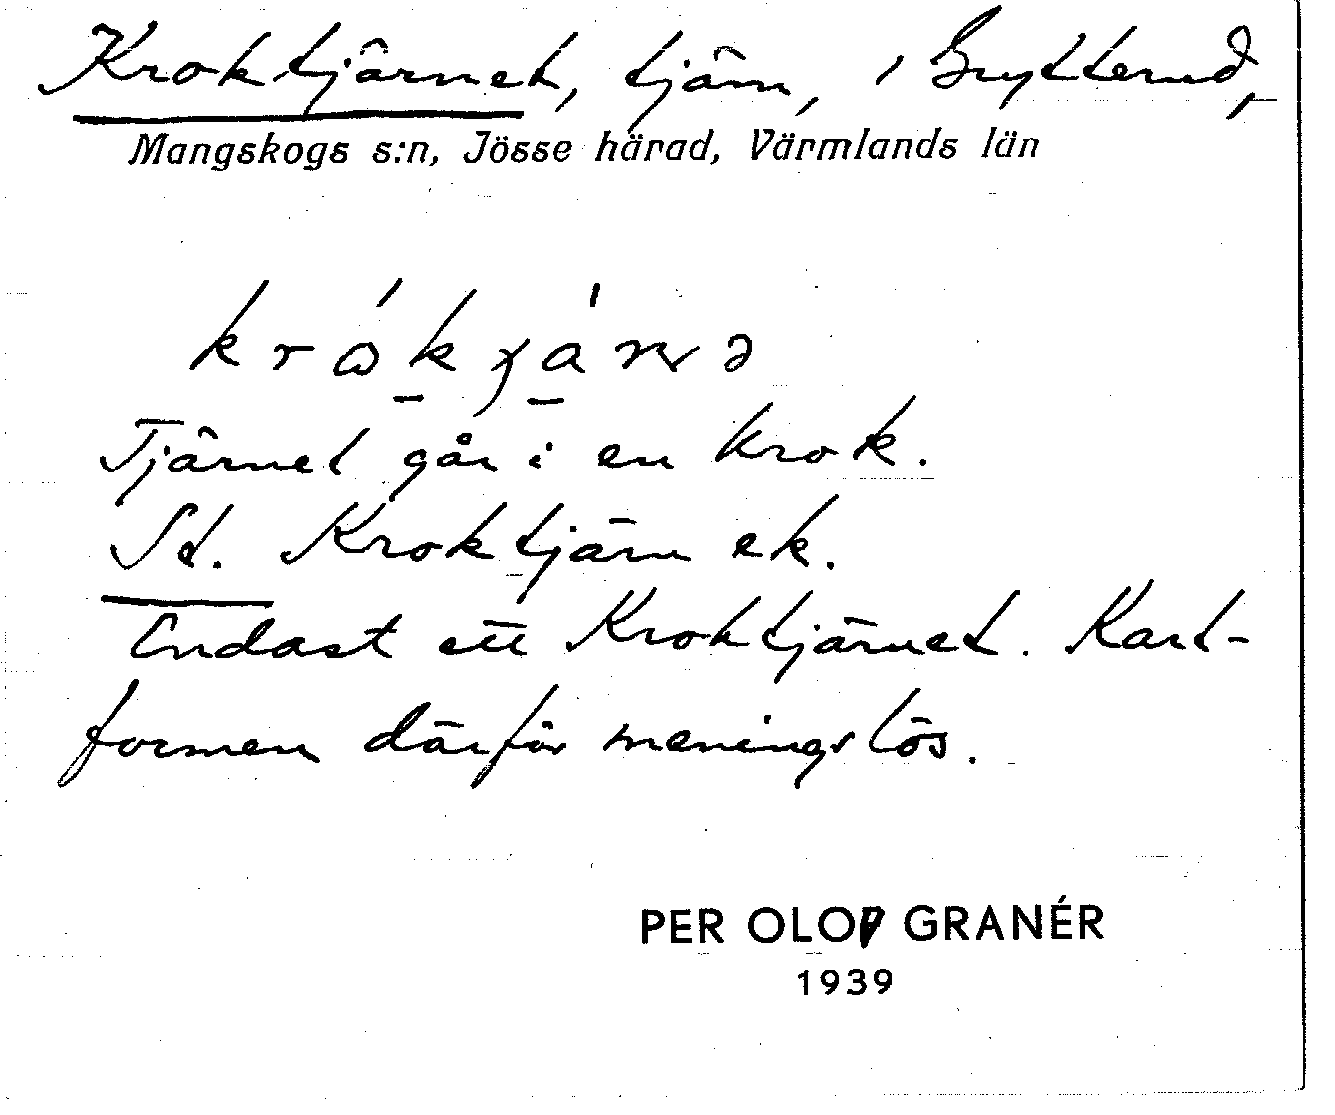 Kroktjärnet, tjärn, i Brytterud,
Mangskogs s:n, Jösse härad, Värmlands län
Tjärnet går i en krok.
St. Kroktjärn ek.
Endast ett Kroktjärnet. Kart-
formen därför meningslös.
PER OLOF GRANÉR
1939